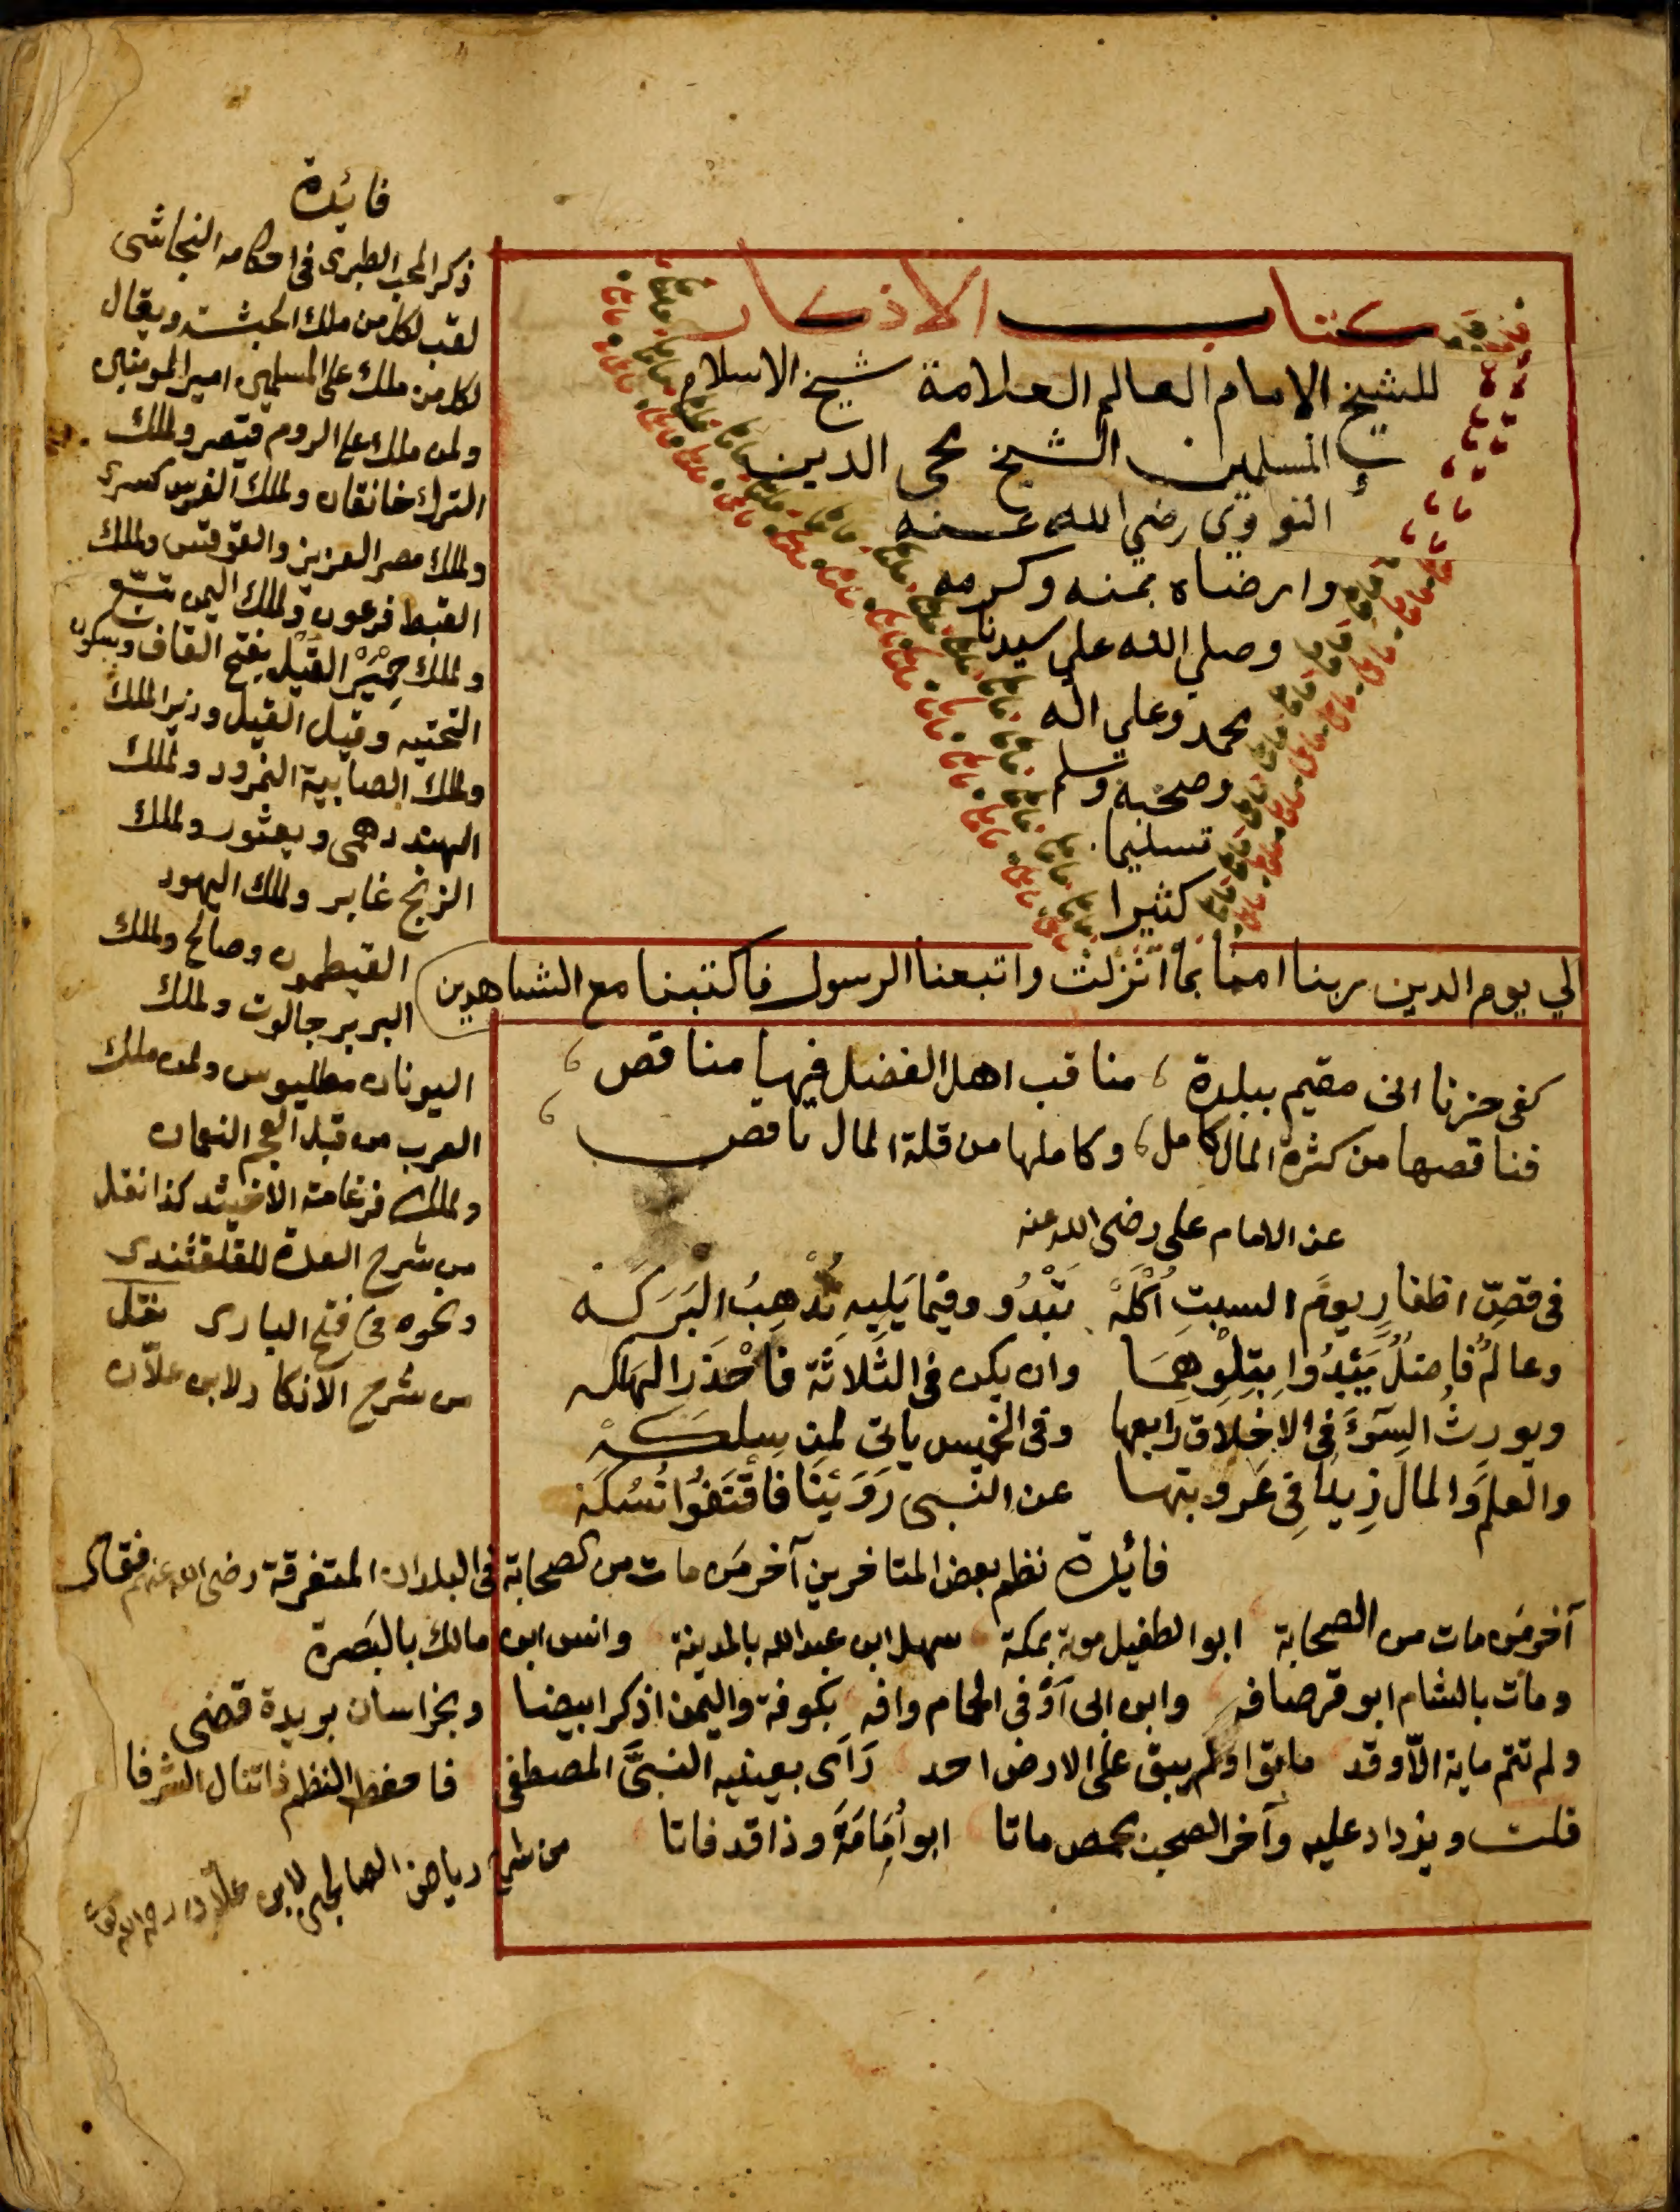 كتاب الاذكار
للشيخ الامام العالم العلامة شيخ الاسلام
المسلمين الشيخ محي الدين
النووي رضي الله عنه
وارضاه بمنه وكرمه
وصلي الله علي سيدنا
محمد وعلي اله
وصحبه وسلم
تسليما
كثيرا
الي يوم الدين ربنا امنا بما انزلت واتبعنا الرسول فاكتبنا مع الشاهدين
كفى حزنا انى مقيم ببلدة ، مناقب اهل الفضل فيها مناقص ،
فناقصها من كثرة المال كامل ، وكاملها من قلة المال ناقص ،
عن الامام على رضى الله عنه
فى قصِّ اظفارِ يومَ السبتِ اكَلَةْ تَبْدُو وفيما يَلِيهِ تُذْهِبُ البَرَكَه
وعالمٌ فاضلٌ يَبْدُوا بِتِلْوِهِمَا وان يكن فى الثَّلاثَة فاحْذَرِ الهلكه
ويورثُ السوّءَ فى الاخلاق رابعها وفى الخميس ياتى لمن سلكهْ
والعلمَ والمالَ زِيدَا فِى عَروبتها عن النّبى رَوَيْنَا فاقْتَفُوا نُسُكَه
فائدة نظم بعض المتاخرين آخر من مات من الصحابة فى البلدان المتفرقة رضى الله عنهم فقال
آخر مَن مات من الصحابة ابو الطفيل موته بمكة سهل ابن عبد الله بالمدينة وانس ابن مالك بالبَصرة
ومات بالشام ابو قرصافه وابن ابى آوَّفى الحمام وافه بكوفة واليمن اذكر ابيضا وبخراسان بريدة قضى
ولم تتم ماية الاّ وقد ماتوا ولم يبق على الارض احد رَآى بعينيه النبىَّ المصطفى فاحفظ النظم ذا تنال الشرفا
قلت ويزداد عليه وآخر الصحب بحمص ماتا ابو اُمَامَةَ وذا قد فاتا من شرح رياض الصالحين لابن علاّن رحمه الله تعالى
فائدة
ذكر المحب الطبرى فى احكامه النجاشى
لقب لكل من ملك الحبشة ويقال
لكل من ملك على المسلمين امير المومنين
ولمن ملك على الروم قيصر ولملك
الترك خاقان ولملك الفرس كسرى
ولملك مصر العزيز والمقوقس ولملك
القبط فرعون ولملك اليمن تبّع
ولملك حِمْيَر القَيْل بفتح القاف وسكون
التحتيه وقيل القيل وزير الملك
ولملك الصابية النمرود ولملك
الهند دهمى ويعثور ولملك
الزنج غابر ولملك اليهود
القيطون وصالح ولملك
البربر جالوت ولملك
اليونان مطليوس ولمن ملك
العرب من قبل العجم النعمان
ولملك فرغامة الاخيشد كذا نقل
من شرح العمدة للقلقشندى
ونحوه فى فتح البارى نقل
من شرح الاذكار لابن علاّن